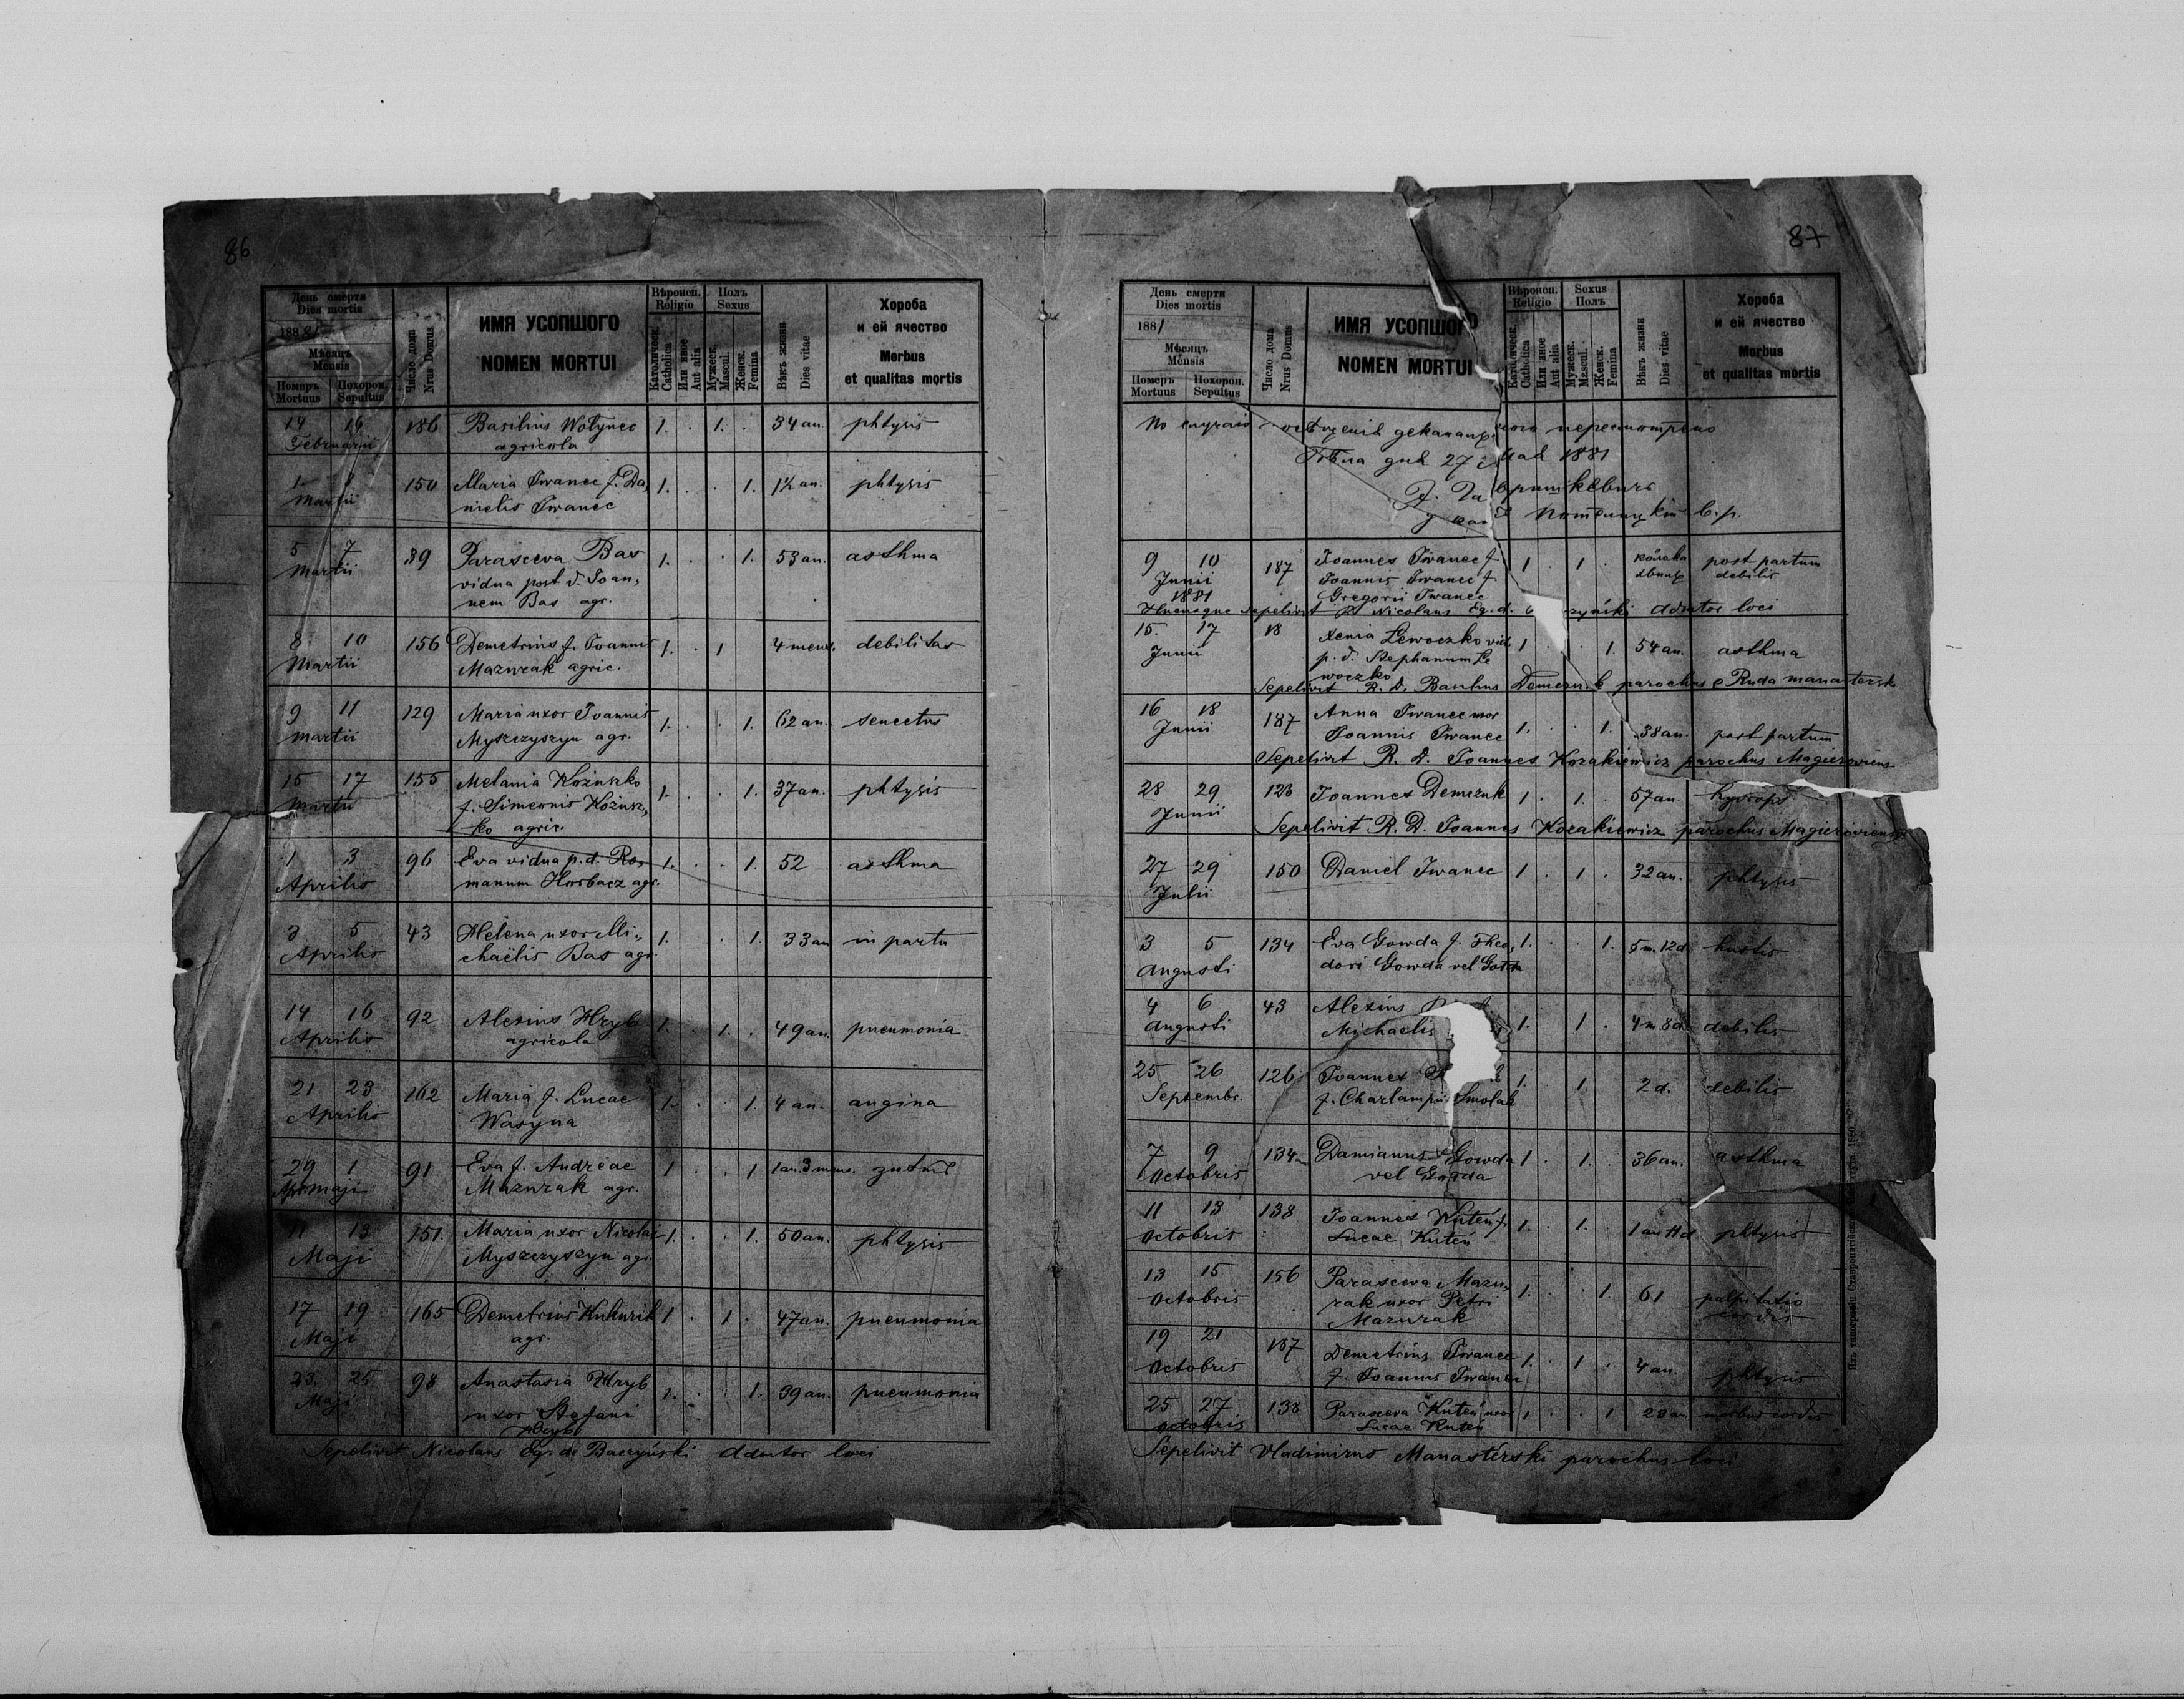 86
День смерти
Dies mortis
1881
Мѣсяцъ
Mensis
Номеръ
Mortuus
Похорон.
Sepultus
Число дома
Nrus Domus
ИМЯ УСОПШОГО
NOMEN MORTUI
Вѣроисп.
Religio
Католическ.
Catholica
Или иное
Aut alia
Полъ
Sexus
Мужеск.
Mascul.
Женск.
Femina
Вѣкъ жизни
Dies vitae
Хороба
и ей ячество
Morbus
et qualitas mortis
14 16 186 Basilius Wołynec 1. . 1. . 34 an. phtysis
Februarii agricola
1 150 Maria Iwanec f. Da, 1. . . 1. 1½ an. phtysis
Martii nielis Iwanec
5 7 39 Parasceva Bas 1. . . 1. 53 an. asthma
Martii vidua post d. Ioan,
nem Bas agr.
8 10 156 Demetrius f. Ioannis 1. . 1 4 mens. debilitas
Martii Mazurak agric.
9 11 129 Maria uxor Ioannis 1. . . 1. 62 an. senectus
Martii Myszczyszyn agr.
15 17 155 Melania Kożuszko 1. . . 1. 37 an. phtysis
Martii f. Simeonis Kożusz,
ko agric.
1 3 96 Eva vidua p. d. Ro, 1. . . 1. 52 asthma
Aprilis manum Horbacz agr.
3 5 43 Helena uxor Mi,, 1. . 1. 33 an in partu
Aprilis chaëlis Bas agr.
14 16 92 Alexius Hryb 1. . 1. . 49 an. pneumonia
Aprilis agricola
21 23 162 Maria f. Lucae 1. . . 1. 4 an. angina
Aprilis Wasyna
29 1 91 Eva f. Andreae 1 . . 1 1 an. 3 mens.
Apr. maji Mazurak agr.
11 13 151. Maria uxor Nicolai 1. . . 1. 50 an. phtysis
Maji Myszczyszyn agr.
17 19 165 Demetrius 1 . 1 . 47 an. pneumonia
Maji agr.
23 25 98 Anastasia Hryb 1. . 1. 39 an. pneumonia
Maji uxor Stefani
Hryb
Sepelivit Nicolaus Eq. de Baczyński Adiutor loci
87
День смерти
Dies mortis
1881
Мѣсяцъ
Mensis
Номеръ
Mortuus
Похорон.
Sepultus
Число дома
Nrus Domus
ИМЯ УСОПШОГО
NOMEN MORTUI
Вѣроисп.
Religio
Католическ.
Catholica
Или иное
Aut alia
Sexus
Полъ
Мужеск.
Mascul.
Женск.
Femina
Вѣкъ жизни
Dies vitae
Хороба
и ей ячество
Morbus
et qualitas mortis
По пересмотрено
дня 27 Мая 1881
9 10 187 Ioannes Iwanec f. 1 . 1 . post partum
Junii Ioannis Iwanec f. debilis
1881 Gregorii Iwanec
Hucusque sepelivit Nicolaus Eq. d. Adiutor loci
15. 17 18 Xenia Lewoczko vid. 1 . . 1. 54 an. asthma
Junii p. d. Stephanum Le
woczko
Sepelivit R. D. parochus e Ruda
16 18 187 Anna Iwanec uxor 1. . . 1. 38 an. post partum
Junii Ioannis Iwanec
Sepelivit R. D. Ioannes Kozakiewicz parochus
28 29 123 Ioannes Demczuk 1 . 1. . 57 an. hydrops
Junii
Sepelivit R. D. Ioannes Kozakiewicz parochus
27 29 150 Daniel Iwanec 1 . 1 . 32 an. phtysis
Julii
3 5 134 Eva Gowda f. Theo, 1. . . 1. 5 m. 12 d.
Augusti dori Gowda vel
4 6 43 Alexius 1. . 1 . 4 m. 8 d. debilis
Augusti Michaelis
25 26 126 Ioannes 1. . 1. 2 d. debilis
Septembr. f. Charlampii Smolak
7 9 134 Damianus Gowda 1 . 1. . 36 an. asthma
Octobris vel
11 13 138 Ioannes Kuteń f. 1. . 1. . 1 an 11 d phtysis
Octobris Lucae Kuteń
13 15 156 Parasceva Mazu, 1. . . 1. 61 palpitatio
Octobris rak uxor Petri cordis
Mazurak
19 21 187 Demetrius Iwanec 1. . 1 . 4 an. phtysis
Octobris f. Ioannis Iwanec
25 27 138 Parasceva Kuteń uxor 1 . . 1 morbus cordis
Octobris Lucae Kuteń
Sepelivit Vladimirus Manastérski parochus loci